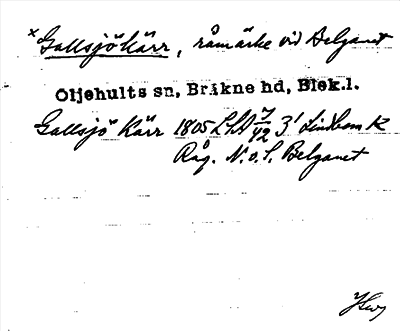 x Gallsjökärr, råmärke vid Belganet
Oljehults sn, Bräkne hd, Blek.l.
Gallsjö Kärr 1805 LSA 7/42 3' Lindbom K
Råg. N. o. S. Belganet